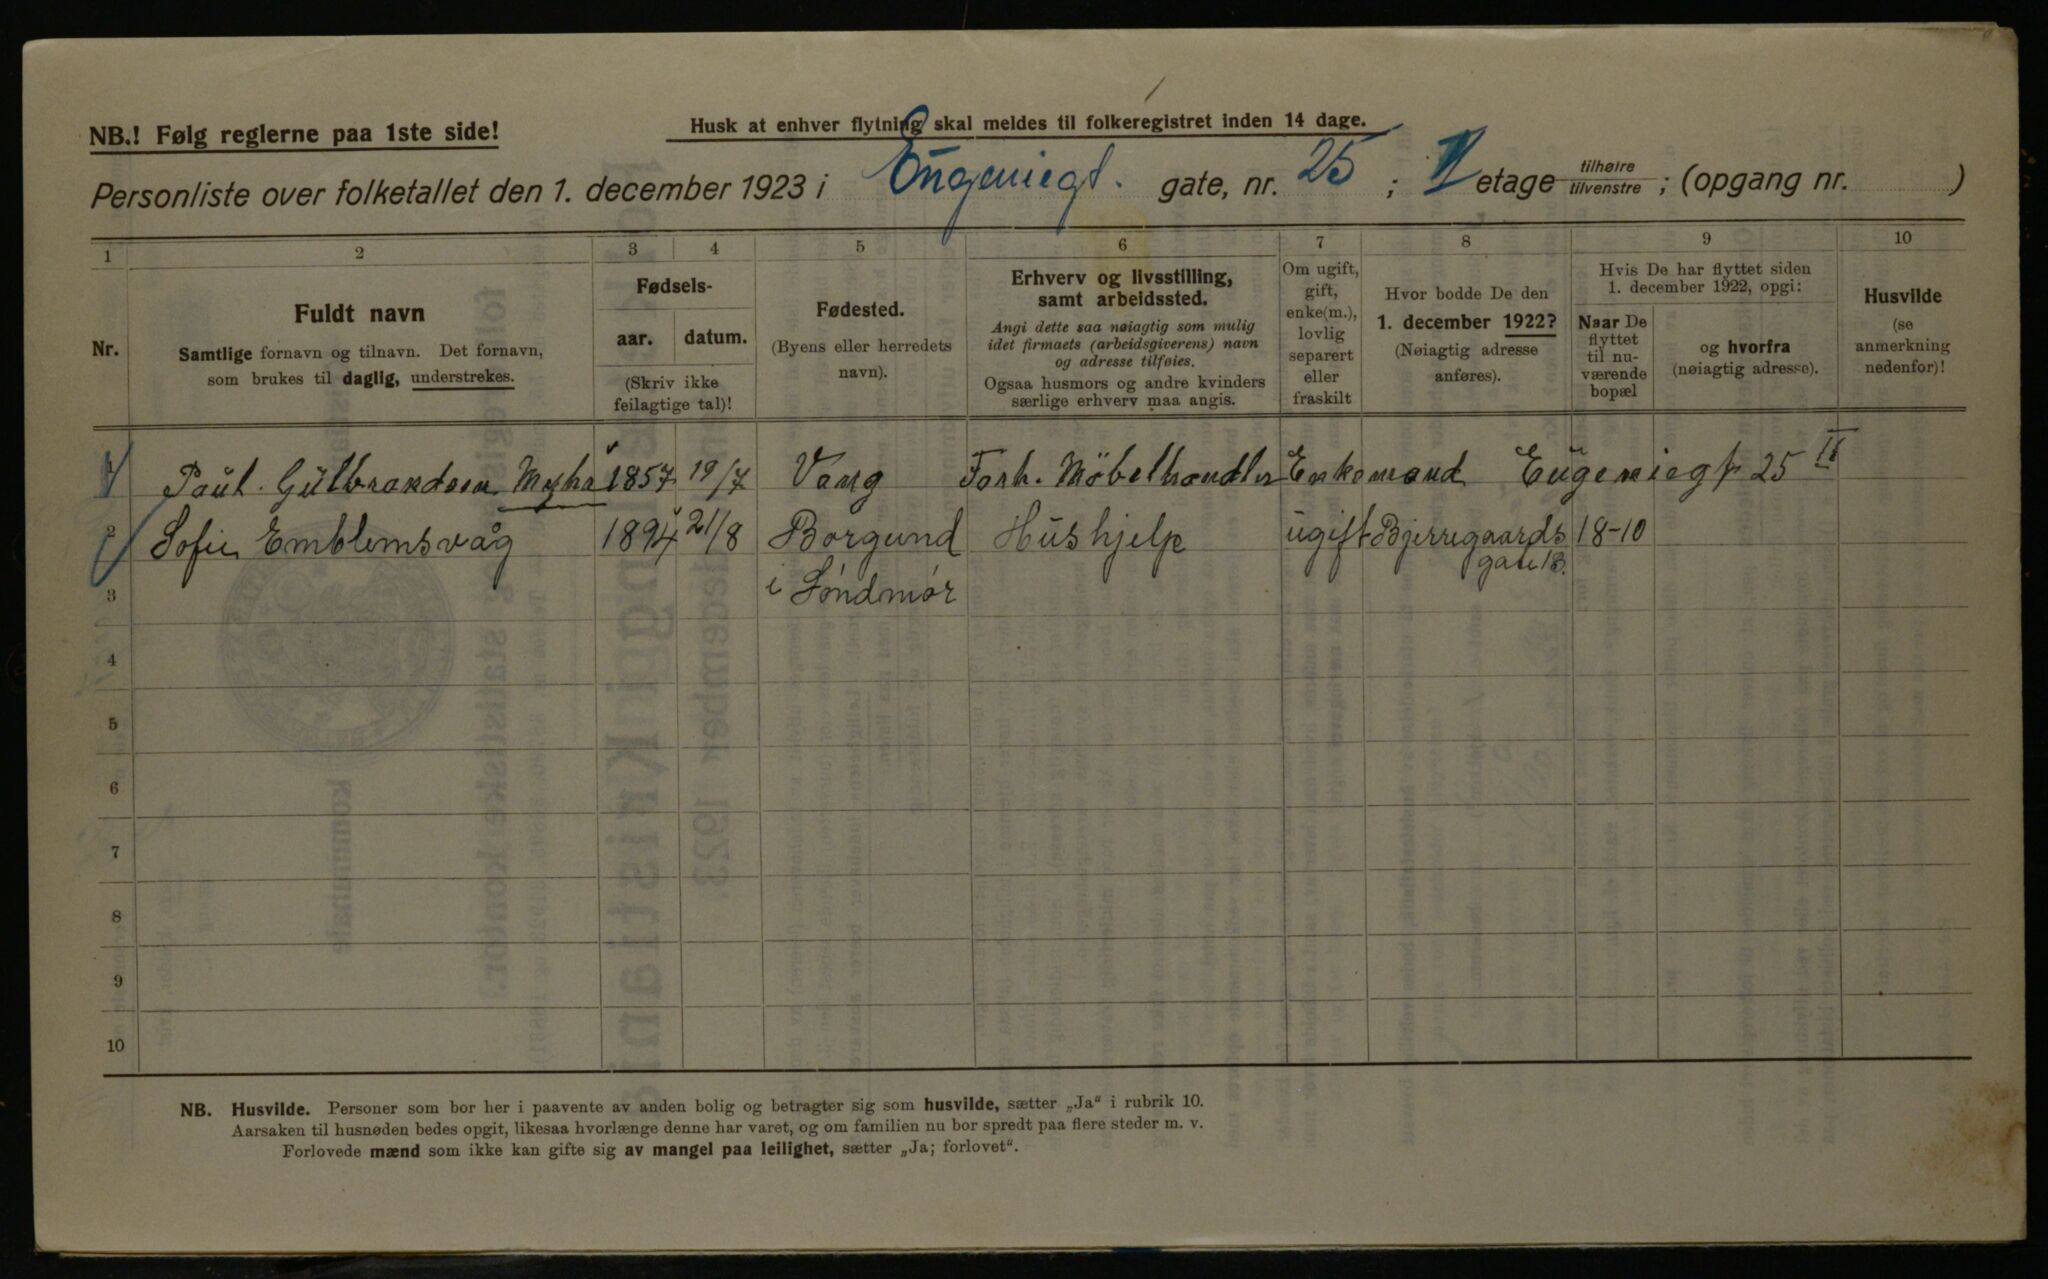 Husk at enhver flytning skal meldes til folkeregistret inden 14 dage.
NB.! Følg reglerne paa 1ste side!
Personliste over folketallet den 1. december 1923 i Eugeniegt. gate, nr. 25 ; etage tilhøire tilvenstre ; (opgang nr. )
1 2 3 4 5 6 7 8 9 10
Nr.
Fuldt navn
Samtlige fornavn og tilnavn. Det fornavn,
som brukes til daglig, understrekes.
Fødsels-
aar. datum.
(Skriv ikke
feilagtige tal)!
Fødested.
(Byens eller herredets
navn).
Erhverv og livsstilling,
samt arbeidssted.
Angi dette saa nøiagtig som mulig
idet firmaets (arbeidsgiverens) navn
og adresse tilføies.
Ogsaa husmors og andre kvinders
særlige erhverv maa angis.
Om ugift,
gift,
enke(m.),
lovlig
separert
eller
fraskilt
Hvor bodde De den
1. december 1922?
(Nøiagtig adresse
anføres).
Hvis De har flyttet siden
1. december 1922, opgi:
Naar De
flyttet
til nu-
værende
bopæl
og hvorfra
(nøiagtig adresse).
Husvilde
(se
anmerkning
nedenfor)!
1 Paul Gulbrandsen Myhr 1857 19/7 Vang Forh. Möbelhandler Enkemand Eugeniegt 25 II
2 Sofie Emblemsvåg 1894 21/8 Borgund Hushjelp ugift Bjerregaards 18-10
gate 13.
3 i Söndmör
4
5
6
7
8
9
10
NB. Husvilde. Personer som bor her i paavente av anden bolig og betragter sig som husvilde, sætter „Ja“ i rubrik 10.
Aarsaken til husnøden bedes opgit, likesaa hvorlænge denne har varet, og om familien nu bor spredt paa flere steder m. v.
Forlovede mænd som ikke kan gifte sig av mangel paa leilighet, sætter „Ja; forlovet“.